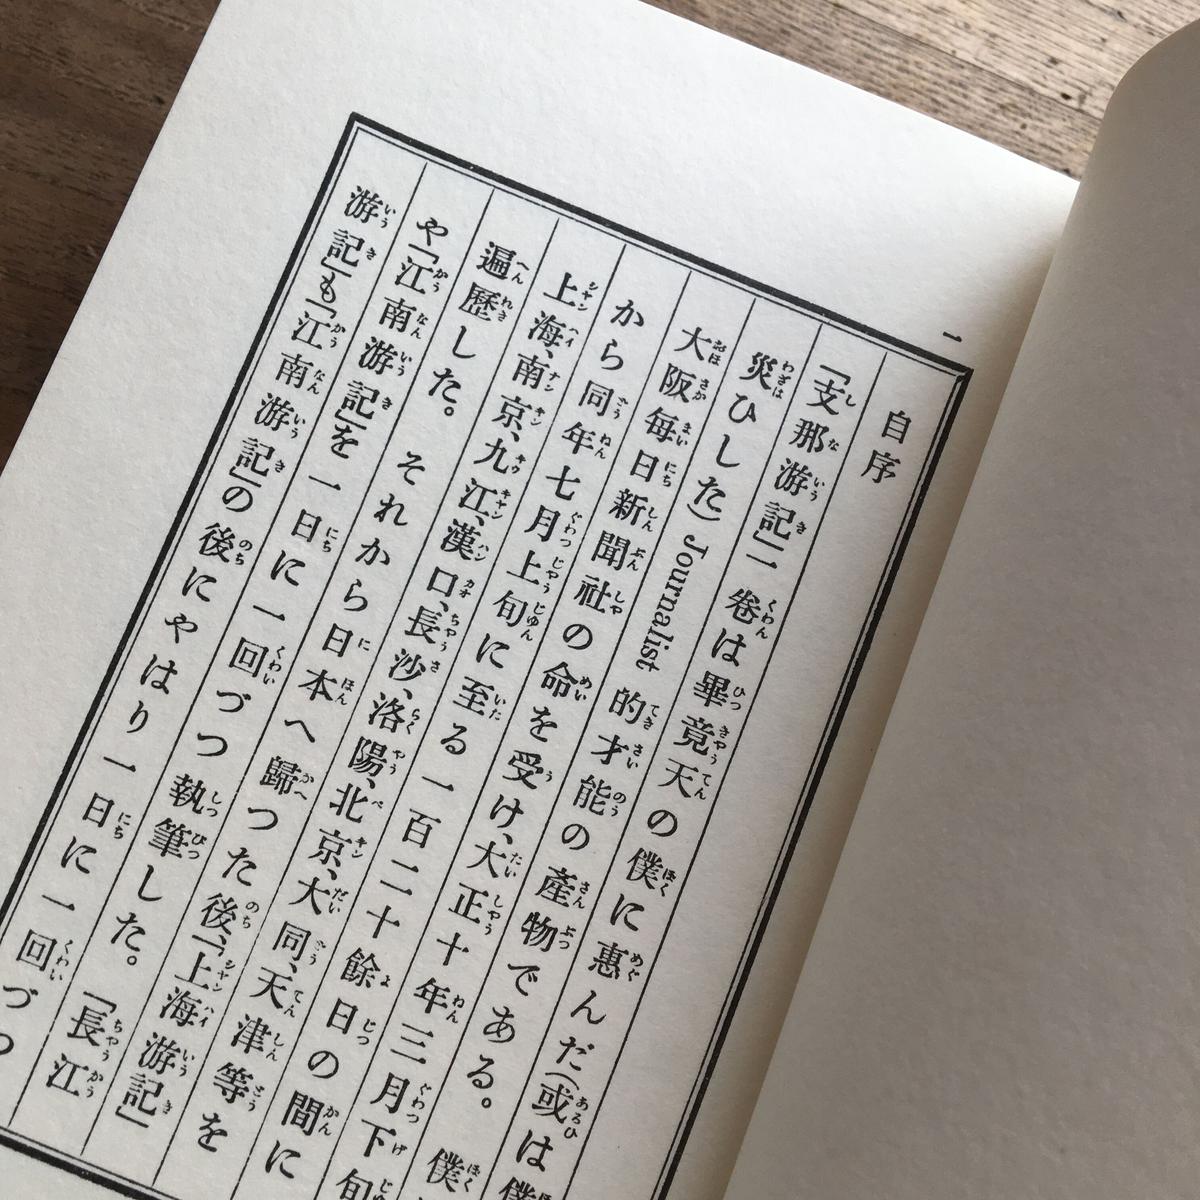 一
自序
「支那游記」一卷は畢竟天の僕に惠んだ(或は僕
災ひした)Journalist 的才能の產物である。 僕
大阪每日新聞社の命を受け、大正十年三月下旬
から同年七月上旬に至る一百二十餘日の間に
上海、南京、九江、漢口、長沙、洛陽、北京、大同、天津等を
遍歷した。 それから日本へ歸つた後、「上海游記」
や「江南游記」を一日に一回づつ執筆した。 「長江
游記」も「江南游記」の後にやはり一日に一回づつ